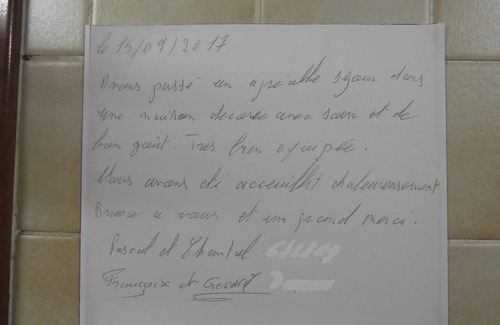 le 15/09/2017
Avons passé un agréable séjour dans
une maison décorée avec soin et de
bon goût. Très bien équipée.
Nous avons été accueillit chaleureusement
Bravo à vous et un grand merci.
Pascal et Chantal
Françoise et Gérard